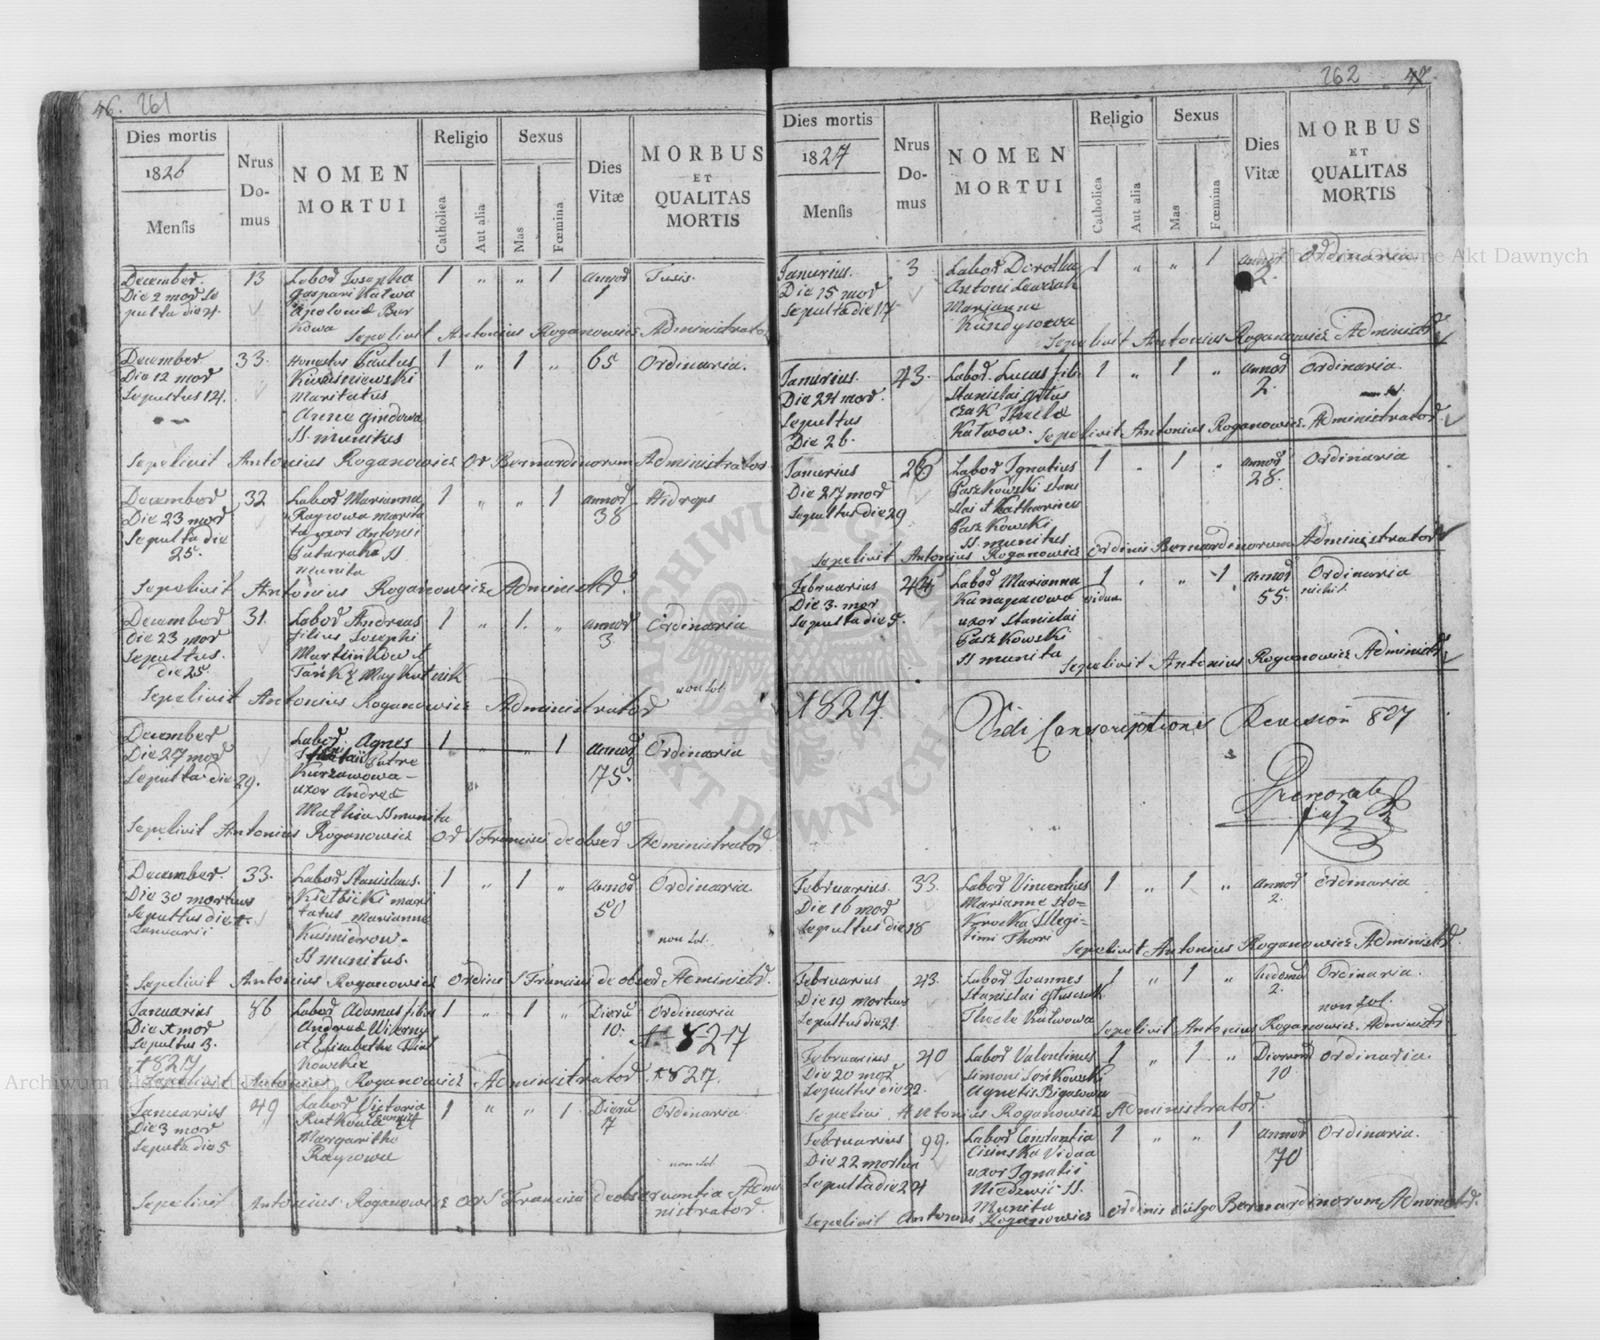 46. 261
Dies mortis
1826
Mensis
Nrus Domus
NOMEN MORTUI
Religio
Catholica
Aut alia
Sexus
Mas
Fœmina
Dies Vitæ
MORBUS ET QUALITAS MORTIS
December 13 Labor Josepha 1 „ „ 1 annor Tusis.
Die 2 mor Se Gaspari Kutwa 1
pulta die 4. Apolonia Bur
Kowa
Sepelivit Antonius Roganowicz Administrator
December 33. Honestus Paulus 1 „ 1 „ 65 Ordinaria.
Die 12 mor Kwasniewski
Sepultus 14. Maritatus
Anna Gindowa
SS munitus
Sepelivit Antonius Roganowicz Or Bernardinorum Administrator
December 32 Labor Marianna 1 „ „ 1 annor Hidrops
Die 23 mor Raysowa marita 38
Sepulta die ta uxor Antoni
25. SS
munita
Sepelivit Antonius Roganowicz Administr.
December 31. Labor Andreas 1 „ 1. „ annor Ordinaria
die 23 mor filius Josephi 3
Sepultus. Martinkow et
die 25.
non sol.
Sepelivit Antonius Roganowicz Administrator
December Labor. Agnes 1 „ „ 1 annor Ordinaria
Die 27 mor 75.
Sepulta die 29. Kurzawowa
uxor Andrea
Mathia SS munita
Sepelivit Antonius Roganowicz Or S Francisci de obser Administrator
December 33. Labor Stanislaus. 1 „ 1 „ annor Ordinaria
Die 30 mortuus Kielbicki mari 50
Sepultus die 1. tatus Marianna
Januarii Kusmierow-
SS munitus. non sol.
Sepelivit Antonius Roganowicz Ordinis S Francisci de obser Administr.
Januarius 86 Labor Adamus filius 1 „ 1 „ Dierū Ordinaria
Die 1 mor Andrea 10. A. 1827
Sepultus 3. et Elisabetha
1827 Kowskie
Sepelivit Antonius Roganowicz Administrator 1827.
Januarius 49 Labor Victoria 1 „ „ 1 Dierū Ordinaria
Die 3 mor Rutkowa 7
Sepulta die 5 Margaritha
Raysowa non sol.
Sepelivit Antonius Roganowicz Or S Francisci de observantia Admi
nistrator.
262 47.
Dies mortis
1827
Mensis
Nrus Domus
NOMEN MORTUI
Religio
Catholica
Aut alia
Sexus
Mas
Fœmina
Dies Vitæ
MORBUS ET QUALITAS MORTIS
Januarius. 3 Labor Dorothea 1 „ „ 1 annor Ordinaria
Die 15 mor Antoni 2.
Sepulta die 17 Marianna
Kundysowa
Sepelivit Antonius Roganowicz Administr
Januarius. 43. Labor. Lucas fili 1 „ 1 „ annor Ordinaria
Die 24 mor. Stanislai Matus 2.
Sepultus czak Thecla
Die 26. Kutwow.
Sepelivit Antonius Roganowicz Administrator
Januarius 26 Labor Ignatius 1 „ 1 „ annor Ordinaria
Die 27 mor Paszkowski Stanis 28.
Sepultus die 29 lai et Katharina
Paszkowski
SS munitus
Sepelivit Antonius Roganowicz Ordinis Bernardinorum Administrator
Februarius 44 Labor Marianna 1 „ „ 1 annor Ordinaria
Die 3. mor vidua 55.
Sepulta die 5. uxor Stanislai
Paszkowski
SS munita
Sepelivit Antonius Roganowicz Administr
1827 Vidi Conscriptiones Revision 827
Februarius. 33. Labor Vincentius 1 „ 1 „ annor Ordinaria
Die 16 mor Marianna Sto- 2.
Sepultus die 18 Krocka Illegi-
timi Thori
Sepelivit Antonius Roganowicz Administr.
Februarius 43. Labor Joannes 1 „ 1 „ hedoma Ordinaria.
Die 19 mortuus Stanislai 2.
Sepultus die 21 Thecla Kutwowa non sol.
Sepelivit Antonius Roganowicz. Administr
Februarius 40 Labor Valentinus 1 „ 1 „ Dierum Ordinaria.
Die 20 mor Simoni 10
Sepultus die 22. Agnetis Bigasowa
Sepelivi Antonius Roganowicz Administrator.
Februarius 99. Labor Constantia 1 „ „ 1 annor Ordinaria.
Die 22 mortua Vidua 70
Sepulta die 24 uxor Ignatii
Niedzwic SS.
Munita
Sepelivit Antonius Roganowicz Ordinis Bernardinorum Administr.
ARCHIWUM GŁÓWNE AKT DAWNYCH
Archiwum Główne Akt Dawnych